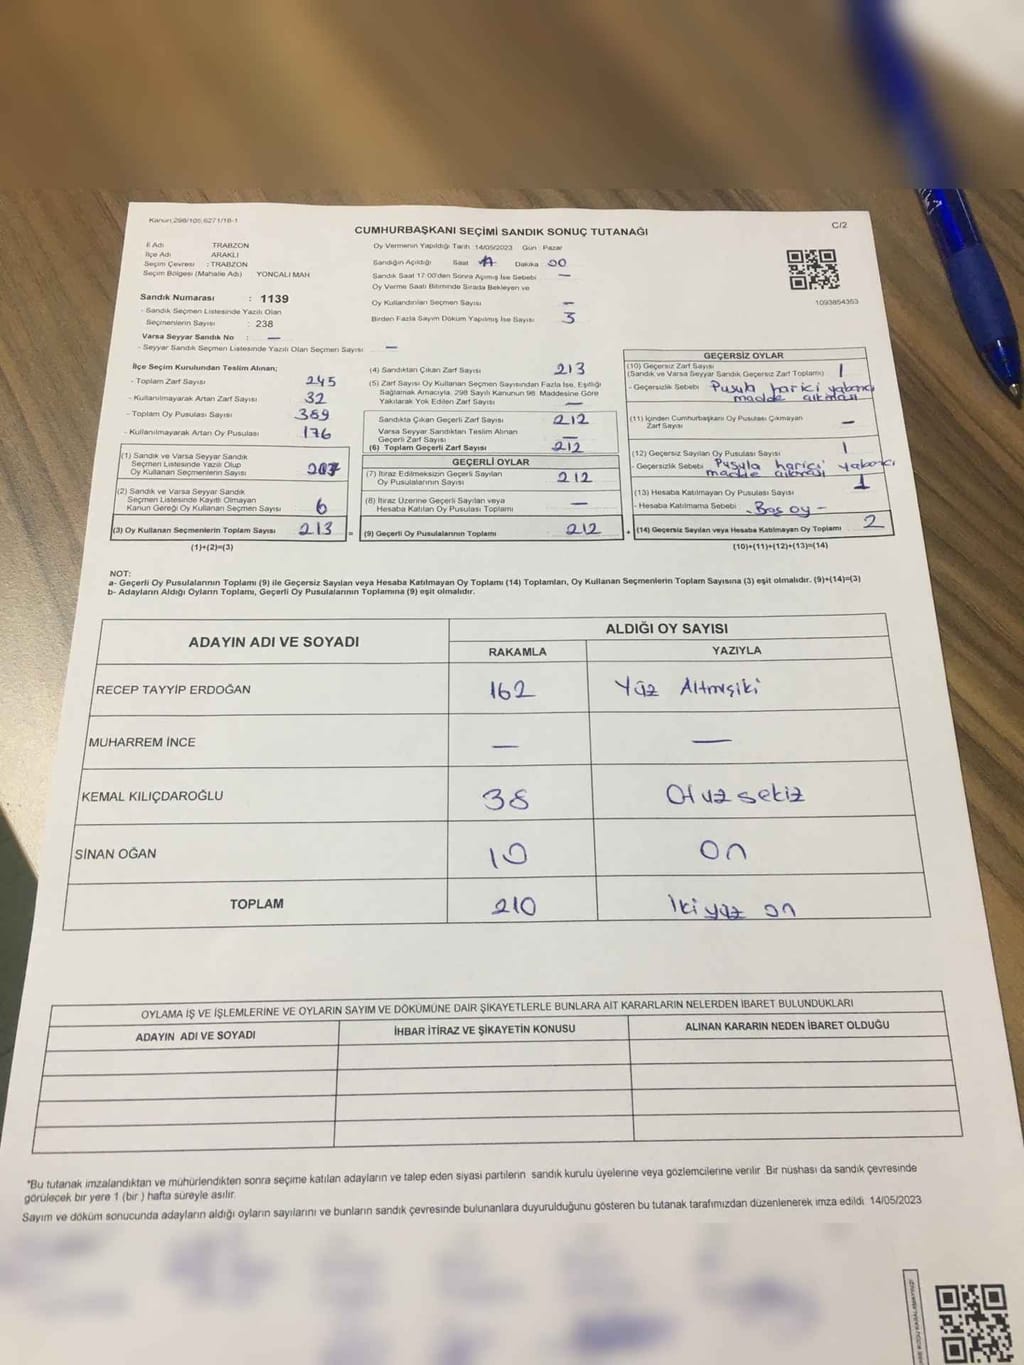 Kanun;298/105,6271/18-1
C/2
CUMHURBAŞKANI SEÇİMİ SANDIK SONUÇ TUTANAĞI
İl Adı TRABZON
İlçe Adı ARAKLI
Seçim Çevresi : TRABZON
Seçim Bölgesi (Mahalle Adı) YONCALI MAH
Sandık Numarası : 1139
- Sandık Seçmen Listesinde Yazılı Olan
Seçmenlerin Sayısı : 238
Varsa Seyyar Sandık No : —
- Seyyar Sandık Seçmen Listesinde Yazılı Olan Seçmen Sayısı —
Oy Vermenin Yapıldığı Tarih 14/05/2023 Gün Pazar
Sandığın Açıldığı Saat Dakika 00
Sandık Saat 17:00'den Sonra Açılmış İse Sebebi —
Oy Verme Saati Bitiminde Sırada Bekleyen ve
Oy Kullandırılan Seçmen Sayısı —
Birden Fazla Sayım Döküm Yapılmış İse Sayısı 3
1093854353
İlçe Seçim Kurulundan Teslim Alınan;
- Toplam Zarf Sayısı 245
- Kullanılmayarak Artan Zarf Sayısı 32
- Toplam Oy Pusulası Sayısı 389
- Kullanılmayarak Artan Oy Pusulası 176
(1) Sandık ve Varsa Seyyar Sandık
Seçmen Listesinde Yazılı Olup
Oy Kullanan Seçmenlerin Sayısı 207
(2) Sandık ve Varsa Seyyar Sandık
Seçmen Listesinde Kayıtlı Olmayan
Kanun Gereği Oy Kullanan Seçmen Sayısı 6
(3) Oy Kullanan Seçmenlerin Toplam Sayısı 213
(1)+(2)=(3)
(4) Sandıktan Çıkan Zarf Sayısı 213
(5) Zarf Sayısı Oy Kullanan Seçmen Sayısından Fazla İse, Eşitliği
Sağlamak Amacıyla, 298 Sayılı Kanunun 98. Maddesine Göre
Yakılarak Yok Edilen Zarf Sayısı —
Sandıkta Çıkan Geçerli Zarf Sayısı 212
Varsa Seyyar Sandıktan Teslim Alınan
Geçerli Zarf Sayısı —
(6) Toplam Geçerli Zarf Sayısı 212
GEÇERLİ OYLAR
(7) İtiraz Edilmeksizin Geçerli Sayılan
Oy Pusulalarının Sayısı 212
(8) İtiraz Üzerine Geçerli Sayılan veya
Hesaba Katılan Oy Pusulası Toplamı —
= (9) Geçerli Oy Pusulalarının Toplamı 212
GEÇERSİZ OYLAR
(10) Geçersiz Zarf Sayısı
(Sandık ve Varsa Seyyar Sandık Geçersiz Zarf Toplamı) 1
- Geçersizlik Sebebi Pusula harici yabancı
madde çıkması
(11) İçinden Cumhurbaşkanı Oy Pusulası Çıkmayan
Zarf Sayısı —
(12) Geçersiz Sayılan Oy Pusulası Sayısı 1
- Geçersizlik Sebebi Pusula harici yabancı
madde çıkması
(13) Hesaba Katılmayan Oy Pusulası Sayısı 1
- Hesaba Katılmama Sebebi - Boş oy -
+ (14) Geçersiz Sayılan veya Hesaba Katılmayan Oy Toplamı 2
(10)+(11)+(12)+(13)=(14)
NOT:
a- Geçerli Oy Pusulalarının Toplamı (9) ile Geçersiz Sayılan veya Hesaba Katılmayan Oy Toplamı (14) Toplamları, Oy Kullanan Seçmenlerin Toplam Sayısına (3) eşit olmalıdır. (9)+(14)=(3)
b- Adayların Aldığı Oyların Toplamı, Geçerli Oy Pusulalarının Toplamına (9) eşit olmalıdır.
ADAYIN ADI VE SOYADI ALDIĞI OY SAYISI
RAKAMLA YAZIYLA
RECEP TAYYİP ERDOĞAN 162 Yüz Altmışiki
MUHARREM İNCE — —
KEMAL KILIÇDAROĞLU 38 Otuz sekiz
SİNAN OĞAN 10 on
TOPLAM 210 İkiyüz on
OYLAMA İŞ VE İŞLEMLERİNE VE OYLARIN SAYIM VE DÖKÜMÜNE DAİR ŞİKAYETLERLE BUNLARA AİT KARARLARIN NELERDEN İBARET BULUNDUKLARI
ADAYIN ADI VE SOYADI İHBAR İTİRAZ VE ŞİKAYETİN KONUSU ALINAN KARARIN NEDEN İBARET OLDUĞU
*Bu tutanak imzalandıktan ve mühürlendikten sonra seçime katılan adayların ve talep eden siyasi partilerin sandık kurulu üyelerine veya gözlemcilerine verilir. Bir nüshası da sandık çevresinde
görülecek bir yere 1 (bir ) hafta süreyle asılır.
Sayım ve döküm sonucunda adayların aldığı oyların sayılarını ve bunların sandık çevresinde bulunanlara duyurulduğunu gösteren bu tutanak tarafımızdan düzenlenerek imza edildi. 14/05/2023